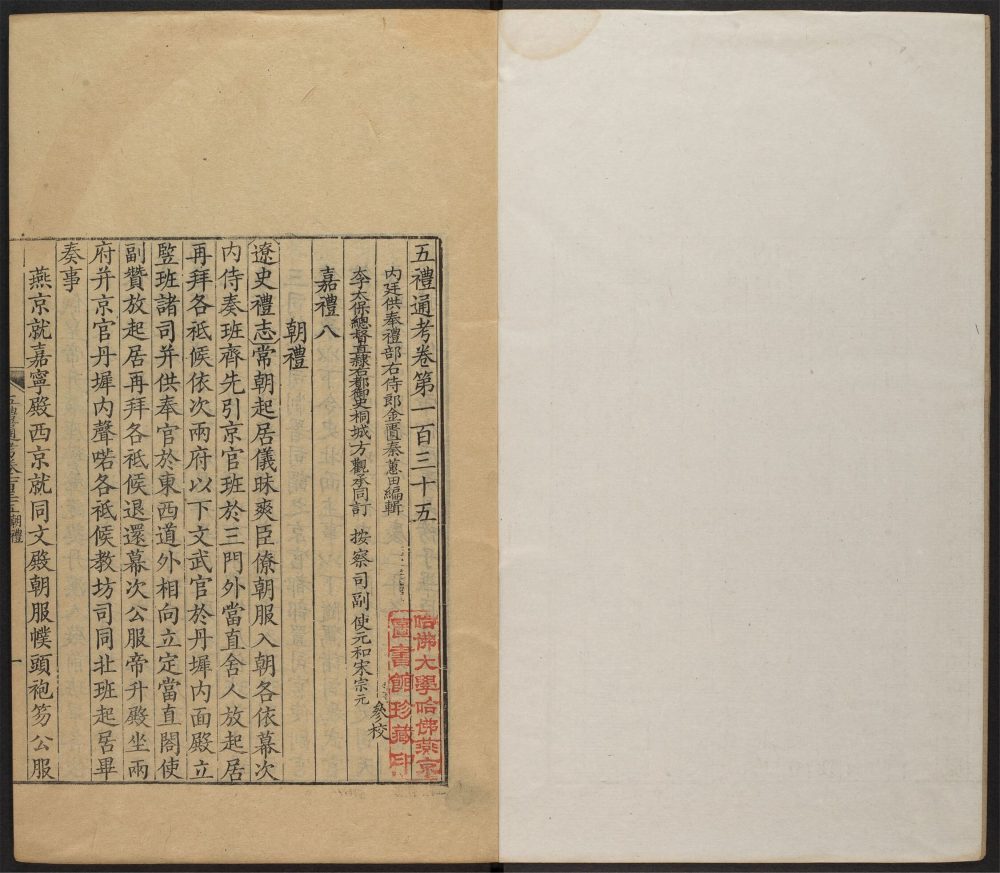 五禮通考卷第一百三十五
內廷供奉禮部右侍郎金匱秦蕙田編輯
李太保總督直隸右都御史桐城方觀承同訂 按察司副使元和宋宗元 參校
嘉禮八
朝禮
遼史禮志常朝起居儀昧爽臣僚朝服入朝各依幕次
內侍奏班齊先引京官班於三門外當直舍人放起居
再拜各祗候依次兩府以下文武官於丹墀內面殿立
竪班諸司并供奉官於東西道外相向立定當直閤使
副贊放起居再拜各祗候退還幕次公服帝升殿坐兩
府并京官丹墀內聲喏各祗候教坊司同北班起居畢
奏事
燕京就嘉寧殿西京就同文殿朝服幞頭袍笏公服
朝禮
一
哈佛大學哈佛燕京
圖書館珍藏印